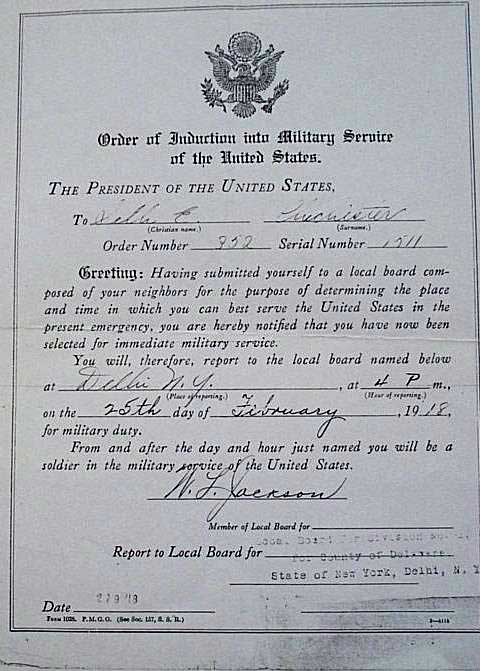 Order of Induction into Military Service
of the United States.
THE PRESIDENT OF THE UNITED STATES,
To E.
(Christian name.) (Surname.)
Order Number 952 Serial Number 1511
Greeting: Having submitted yourself to a local board com-
posed of your neighbors for the purpose of determining the place
and time in which you can best serve the United States in the
present emergency, you are hereby notified that you have now been
selected for immediate military service.
You will, therefore, report to the local board named below
at Delhi N. Y. , at 4 P m.,
(Place of reporting.) (Hour of reporting.)
on the 25th day of February , 1918,
for military duty.
From and after the day and hour just named you will be a
soldier in the military service of the United States.
W. L. Jackson
Member of Local Board for
Local Board for Division No.
Report to Local Board for for County of Delaware
State of New York, Delhi, N. Y
Date
FORM 1028. P.M.G.O. (See Sec. 157, S. S. R.)